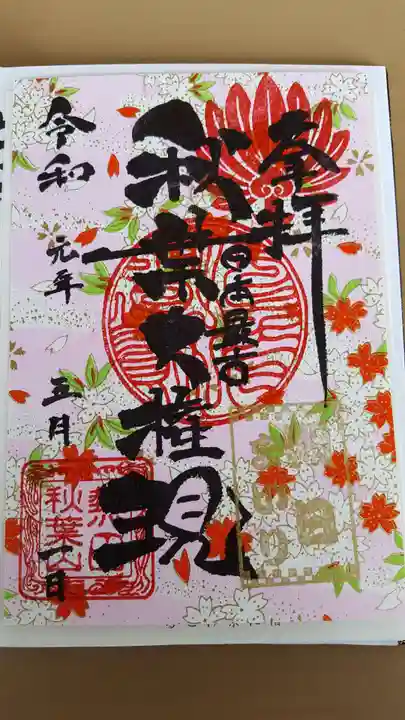 奉拝
日本最古
秋葉大権現
令和元年五月一日
秋葉山